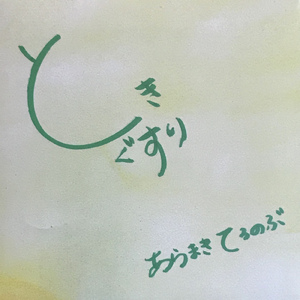 ときぐすり
あらまきてるのぶ